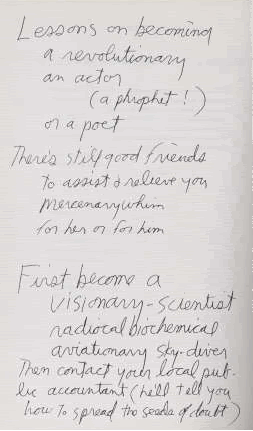 Lessons on becoming
a revolutionary
an actor
(a phrophet!)
or a poet
There's still good friends
to assist & relieve you
mercenary whim
for her or for him
First become a
visionary-scientist
radiocal biochemical
aviationary sky-diver
Then contact your local pub-
lic accountant (he'll tell you
how to spread the seeds of doubt)